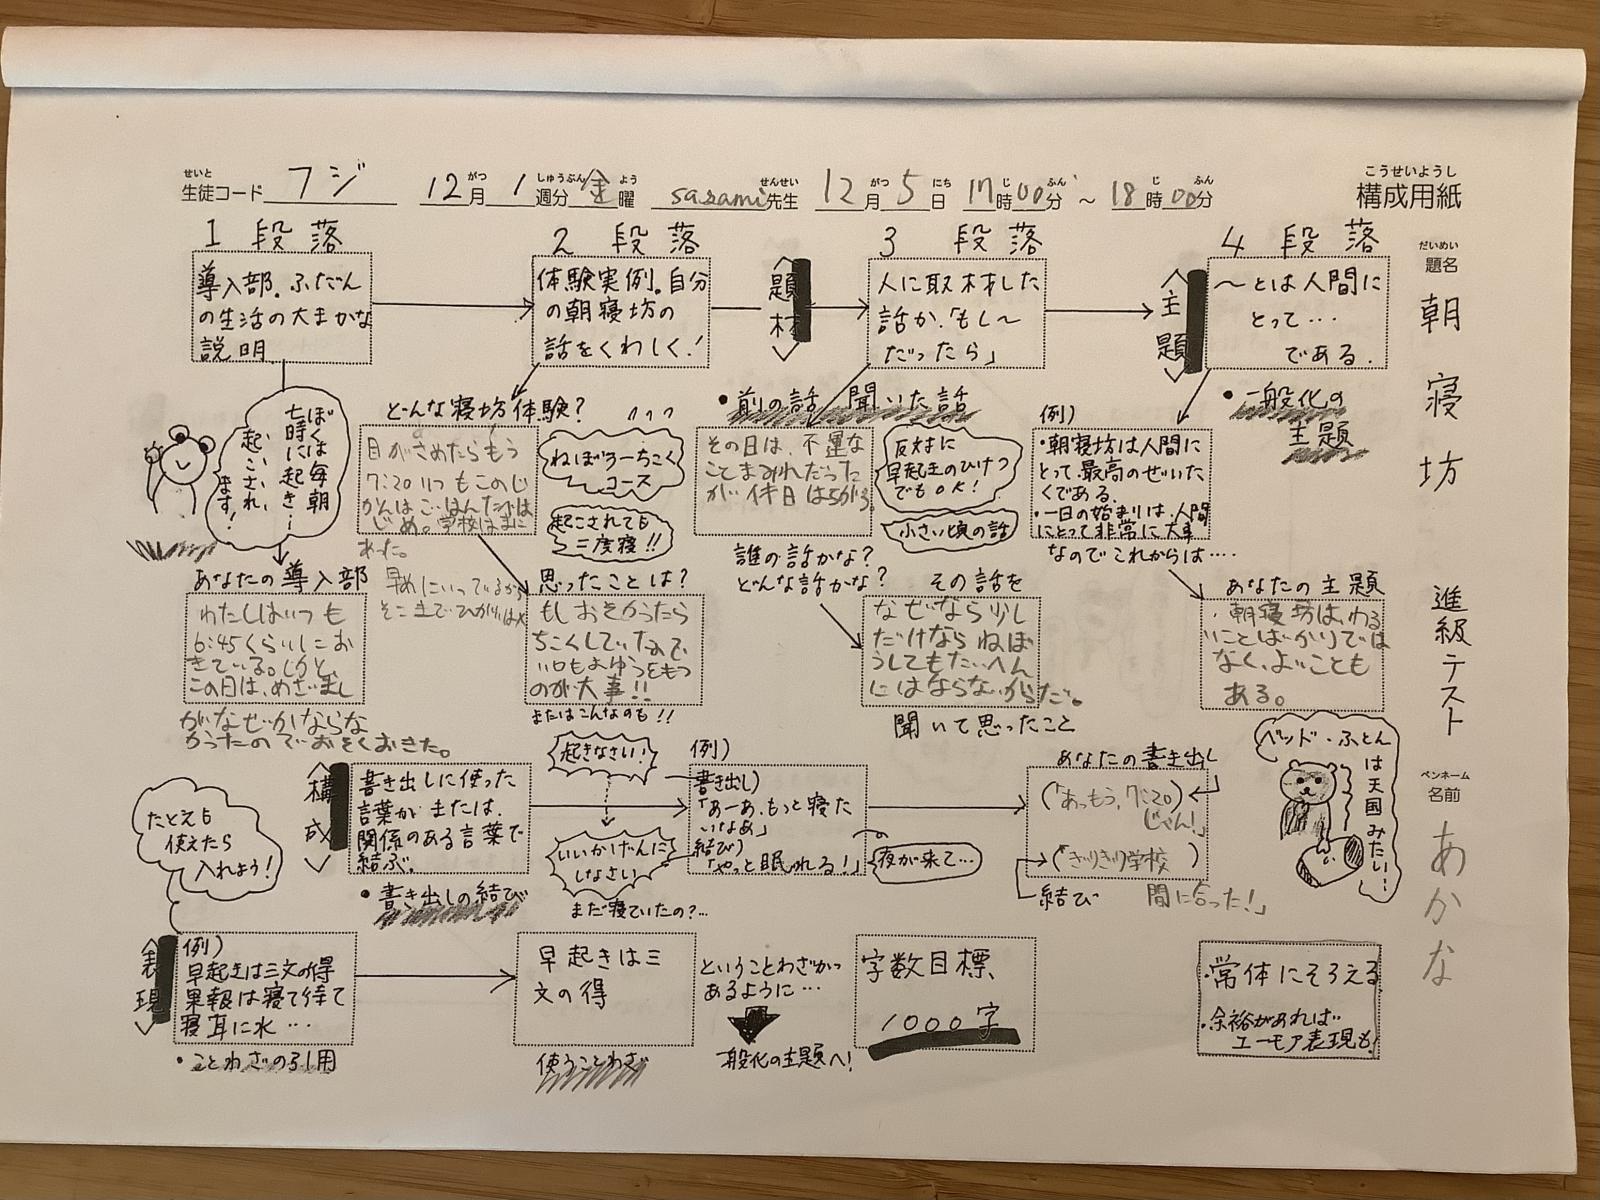 せいと
生徒コード フジ
12月 1週分 金曜 sasami先生 12月5日 17時00分 ～ 18時00分
がつ しゅうぶん よう せんせい がつ にち じ ふん じ ふん
こうせいようし
構成用紙
だいめい
題名
朝寝坊
進級テスト
ペンネーム
名前
あかな
1 段落
導入部。ふだん
の生活の大まかな
説明
2 段落
体験実例。自分
の朝寝坊の
話をくわしく!
〈題材〉
3 段落
人に取材した
話か、「もし～
だったら」
〈主題〉
4 段落
～とは人間に
とって…
である。
ぼくは毎朝
七時に起き…
起こされ、
ます!
どんな寝坊体験?
目がさめたらもう
7:20いつもこのじ
かんはごはんたべは
じめ。学校はまに
あった。
早めにいっているから
ねぼうーちこく
コース
起こされても
二度寝!!
・前の話 聞いた話
その日は、不運な
ことまみれだった
が休日は
反対に
早起きのひけつ
でもOK!
小さい頃の話
例)
・朝寝坊は人間に
とって最高のぜいた
くである。
・一日の始まりは、人間
にとって非常に大事
なのでこれからは….
・一般化の
主題
あなたの導入部
わたしはいつも
6:45くらいにお
きている。しかし、
この日は、めざまし
がなぜかならな
かったのでおそくおきた。
思ったことは?
もしおそかったら
ちこくしていたので
いつもよゆうをもつ
のが大事!!
またはこんなのも!!
誰の話かな?
どんな話かな?
その話を
なぜなら少し
だけならねぼ
うしてもたいへん
にはならないからだ。
聞いて思ったこと
あなたの主題
・朝寝坊は、わる
いことばかりでは
なく、よいことも
ある。
ベッド・ふとん
は天国みたい…
たとえも
使えたら
入れよう!
〈構成〉
書き出しに使った
言葉か または、
関係のある言葉で
結ぶ。
・書き出しの結び
起きなさい!
いいかげんに
しなさい
まだ寝ていたの?…
例)
書き出し)
「あーあ、もっと寝た
いなあ」
結び)
「やっと眠れる!」
夜が来て…
あなたの書き出し
(「あっもう、7:20)
じゃん!」
(「ぎりぎり学校 )
結び 間に合った!」
〈表現〉
例)
早起きは三文の得
果報は寝て待て
寝耳に水 …
・ことわざの引用
早起きは三
文の得
使うことわざ
ということわざが
あるように…
一般化の主題へ!
字数目標、
1000字
・常体にそろえる
・余裕があれば
ユーモア表現も!